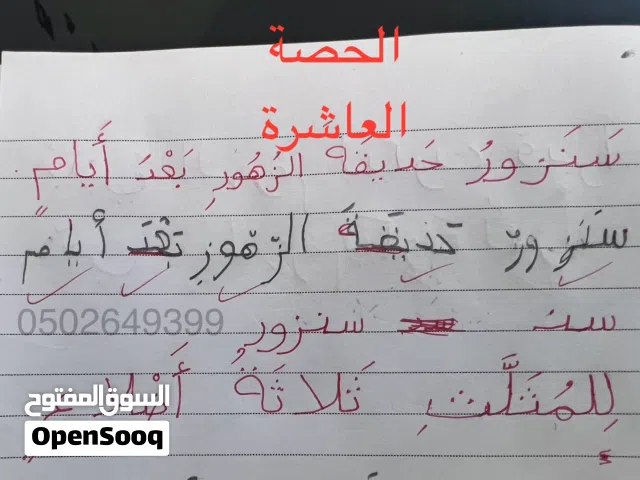 الحصة
العاشرة
سَنَزورُ حَديقَة الزُهُورِ بَعْدَ أَيامٍ.
سَنَزورُ حَديقَةَ الزّهورِ بَعْدَ أيامٍ
سنـ سنزور
0502649399
لِلمُثَلَّثِ ثَلاثَةَ أَضْلاعٍ
السوق المفتوح
OpenSooq